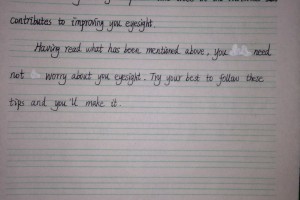 contributes to improving you eyesight.
Having read what has been mentioned above, you need
not worry about you eyesight. Try your best to follow these
tips and you'll make it.